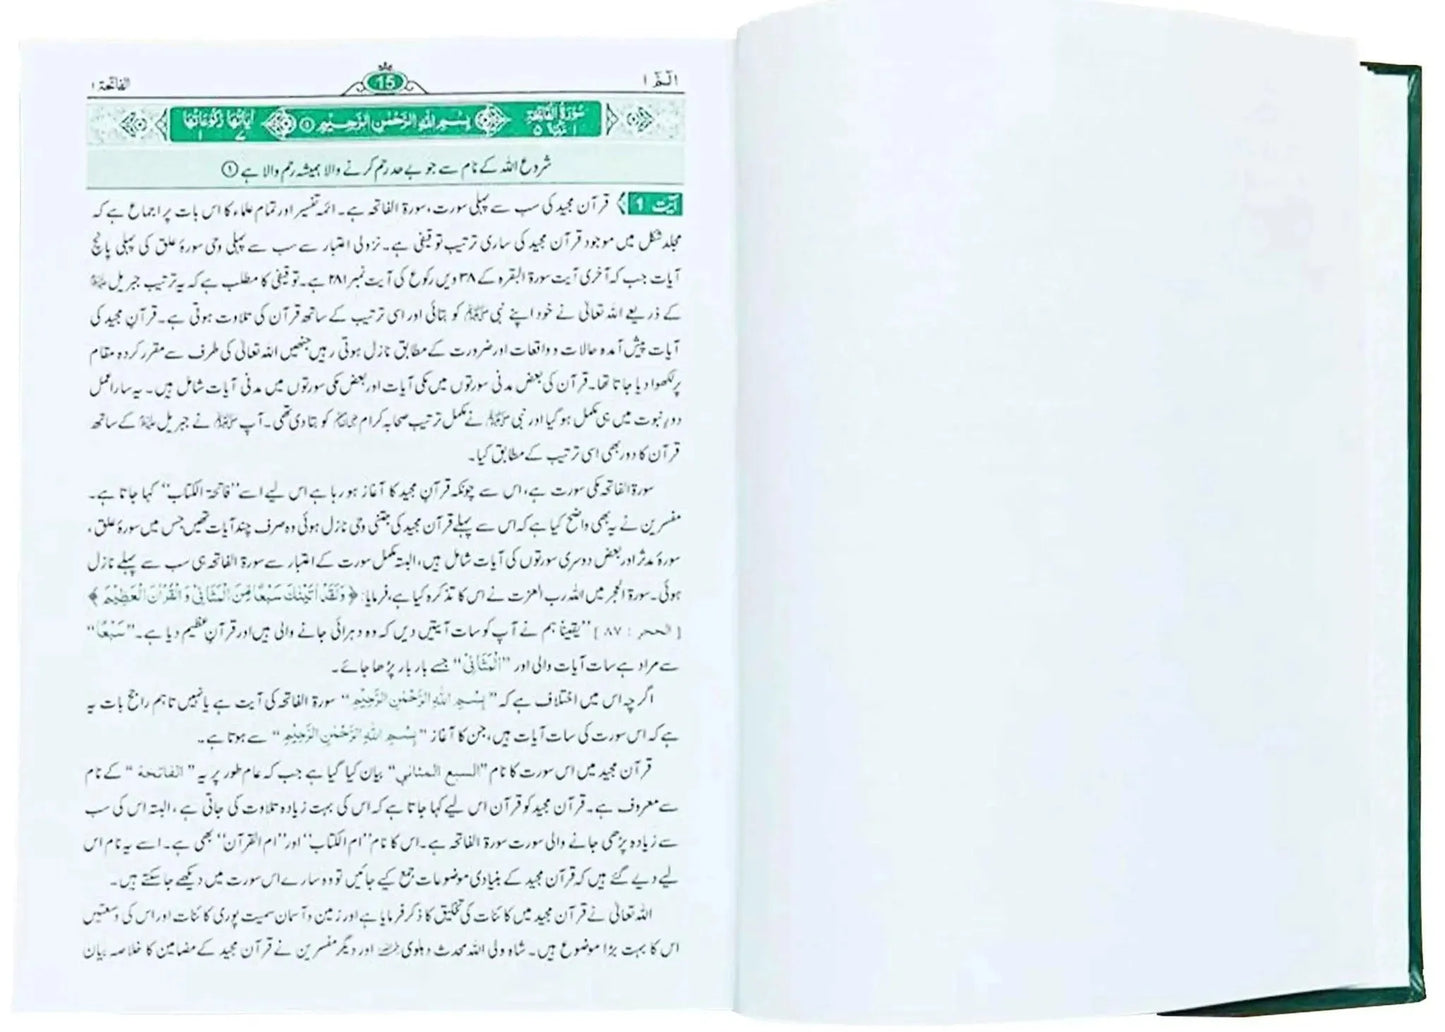 الٓمّٓ ۱
15
الفاتحة ۱
سُوْرَةُ الْفَاتِحَةِ
بِسْمِ اللّٰهِ الرَّحْمٰنِ الرَّحِيْمِ ①
اٰيَاتُهَا ۷ رُكُوْعَاتُهَا ۱
شروع اللہ کے نام سے جو بے حد رحم کرنے والا ہمیشہ رحم والا ہے ①
آیت 1 قرآن مجید کی سب سے پہلی سورت، سورۃ الفاتحہ ہے۔ ائمہ تفسیر اور تمام علماء کا اس بات پر اجماع ہے کہ
مجلد شکل میں موجود قرآن مجید کی ساری ترتیب توقیفی ہے۔ نزولی اعتبار سے سب سے پہلی وحی سورۂ علق کی پہلی پانچ
آیات جب کہ آخری آیت سورۃ البقرہ کے ۳۸ ویں رکوع کی آیت نمبر ۲۸۱ ہے۔ توقیفی کا مطلب ہے کہ یہ ترتیب جبریل علیہ السلام
کے ذریعے اللہ تعالیٰ نے خود اپنے نبی ﷺ کو بتائی اور اسی ترتیب کے ساتھ قرآن کی تلاوت ہوتی ہے۔ قرآن مجید کی
آیات پیش آمدہ حالات و واقعات اور ضرورت کے مطابق نازل ہوتی رہیں جنھیں اللہ تعالیٰ کی طرف سے مقرر کردہ مقام
پر لکھوا دیا جاتا تھا۔ قرآن کی بعض مدنی سورتوں میں مکی آیات اور بعض مکی سورتوں میں مدنی آیات شامل ہیں۔ یہ سارا عمل
دورِ نبوت میں ہی مکمل ہو گیا اور نبی ﷺ نے مکمل ترتیب صحابہ کرام کو بتا دی تھی۔ آپ ﷺ نے جبریل کے ساتھ
قرآن کا دور بھی اسی ترتیب کے مطابق کیا۔
سورۃ الفاتحہ مکی سورت ہے، اس سے چونکہ قرآنِ مجید کا آغاز ہو رہا ہے اس لیے اسے "فاتحۃ الکتاب" کہا جاتا ہے۔
مفسرین نے یہ بھی واضح کیا ہے کہ اس سے پہلے قرآن مجید کی جتنی وحی نازل ہوئی وہ صرف چند آیات تھیں جس میں سورۂ علق،
سورۂ مدثر اور بعض دوسری سورتوں کی آیات شامل ہیں، البتہ مکمل سورت کے اعتبار سے سورۃ الفاتحہ ہی سب سے پہلے نازل
ہوئی۔ سورۃ الحجر میں اللہ رب العزت نے اس کا تذکرہ کیا ہے، فرمایا: ﴿ وَلَقَدْ اٰتَيْنٰكَ سَبْعًا مِّنَ الْمَثَانِيْ وَالْقُرْاٰنَ الْعَظِيْمَ ﴾
[الحجر : ۸۷] "یقیناً ہم نے آپ کو سات آیتیں دیں کہ وہ دہرائی جانے والی ہیں اور قرآنِ عظیم دیا ہے۔" "سَبْعًا"
سے مراد ہے سات آیات والی اور "الْمَثَانِيْ" جسے بار بار پڑھا جائے۔
اگرچہ اس میں اختلاف ہے کہ "بِسْمِ اللّٰهِ الرَّحْمٰنِ الرَّحِيْمِ" سورۃ الفاتحہ کی آیت ہے یا نہیں تاہم راجح بات یہ
ہے کہ اس سورت کی سات آیات ہیں، جن کا آغاز "بِسْمِ اللّٰهِ الرَّحْمٰنِ الرَّحِيْمِ" سے ہوتا ہے۔
قرآن مجید میں اس سورت کا نام "السبع المثاني" بیان کیا گیا ہے جب کہ عام طور پر یہ "الفاتحة" کے نام
سے معروف ہے۔ قرآن مجید کو قرآن اس لیے کہا جاتا ہے کہ اس کی بہت زیادہ تلاوت کی جاتی ہے، البتہ اس کی سب
سے زیادہ پڑھی جانے والی سورت سورۃ الفاتحہ ہے۔ اس کا نام "ام الکتاب" اور "ام القرآن" بھی ہے۔ اسے یہ نام اس
لیے دیے گئے ہیں کہ قرآن مجید کے بنیادی موضوعات جمع کیے جائیں تو وہ سارے اس سورت میں دیکھے جا سکتے ہیں۔
اللہ تعالیٰ نے قرآن مجید میں کائنات کی تخلیق کا ذکر فرمایا ہے اور زمین و آسمان سمیت پوری کائنات اور اس کی وسعتیں
اس کا بہت بڑا موضوع ہیں۔ شاہ ولی اللہ محدث دہلوی اور دیگر مفسرین نے قرآن مجید کے مضامین کا خلاصہ بیان